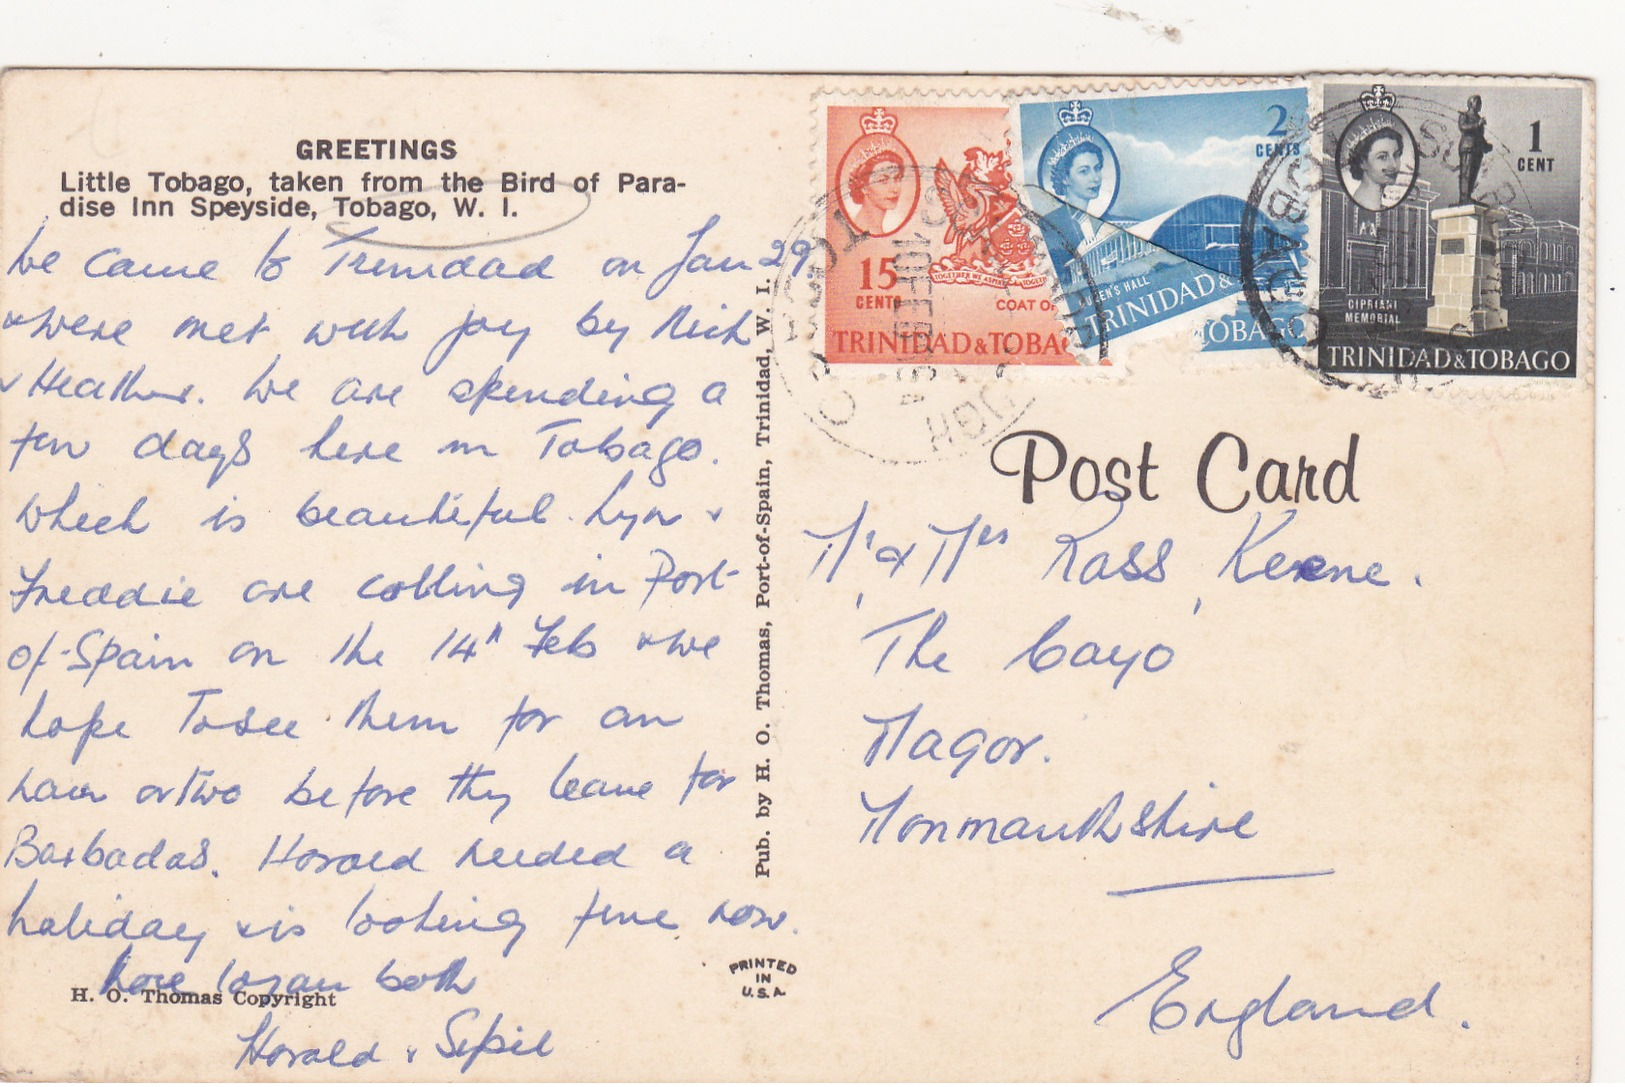 GREETINGS
Little Tobago, taken from the Bird of Para-
dise Inn Speyside, Tobago, W. I.
We came to Trinidad on Jan 29
& were met with joy by Nick
& Heather. We are spending a
few days here in Tobago.
which is beautiful. Lyn &
Freddie are calling in Port-
of-Spain on the 14th Feb & we
hope to see them for an
hour or two before they leave for
Barbados. Harold needed a
holiday & is looking fine now.
Love to you both
H. O. Thomas Copyright
Harold &
Pub. by H. O. Thomas, Port-of-Spain, Trinidad, W. I.
PRINTED
IN
U.S.A.
15
CENTS
COAT OF
TOGETHER WE ASPIRE
TRINIDAD & TOBA
2
CENTS
QUEEN'S HALL
TRINIDAD &
TOBAGO
1
CENT
CIPRIANI
MEMORIAL
TRINIDAD & TOBAGO
TOBAGO
Post Card
Mr & Mrs Ross Keene.
The Cayo
Magor.
Monmouthshire
England.